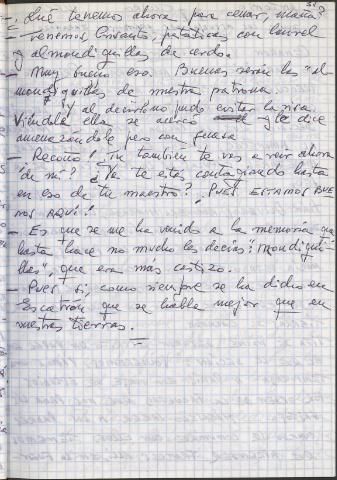 31
— ¿Qué tenemos ahora para cenar, maña?
— Tenemos guisantes, pataticas con laurel
y almondiguillas de cerdo.
— Muy bueno eso. Buenas serán las "al
mondiguillas de nuestra patrona.
Y al decirlo no pudo evitar la risa.
Viéndole ella se acercó y le dice
amenazándole pero con guasa
— Recoño! ¿Tú también te vas a reir ahora
de mí? ¿Ya te estás contagiando hasta
en eso de tu maestro? ¡PUES ESTAMOS BUE
NOS AQUÍ!
— Es que se me ha venido a la memoria que
hasta hace no mucho les decías "mondigui
llas", que era mas castizo.
— Pues si, como siempre se ha dicho en
Escatrón que se habla mejor que en
nuestras tierras.